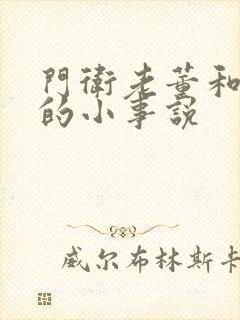 門衛老董和
的小事説
威尔布林斯卡